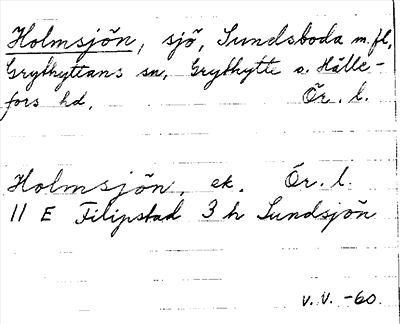 Holmsjön, sjö, Sundsboda m.fl,
Grythyttans sn, Grythytte o. Hälle-
fors hd, Ör. l.
Holmsjön, ek. Ör. l.
11 E Filipstad 3 h Sundsjön
V. V. -60.